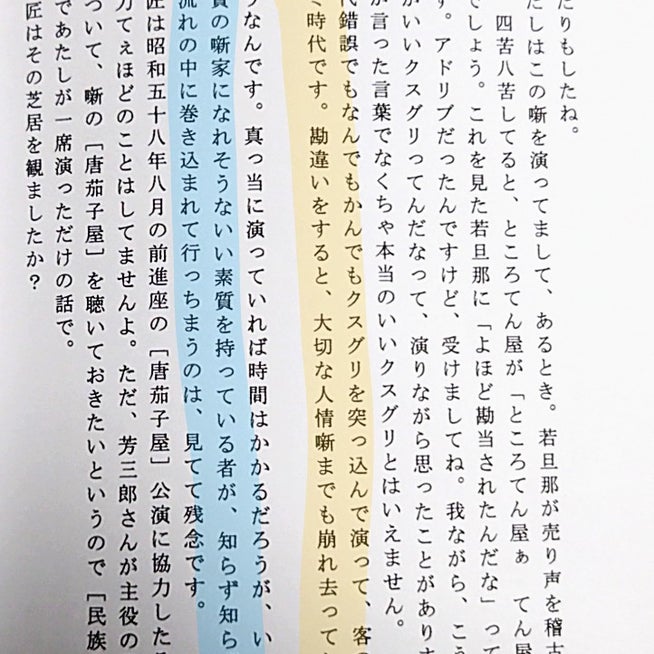 たりもしたね。
たしはこの噺を演ってまして、あるとき。若旦那が売り声を稽古
四苦八苦してると、ところてん屋が「ところてん屋ぁ てん屋
でしょう。これを見た若旦那に「よほど勘当されたんだな」って
す。アドリブだったんですけど、受けましてね。我ながら、こう
がいいクスグリってんだなって、演りながら思ったことがありま
が言った言葉でなくちゃ本当のいいクスグリとはいえません。
代錯誤でもなんでもかんでもクスグリを突っ込んで演って、客の
時代です。勘違いをすると、大切な人情噺までも崩れ去って
うなんです。真っ当に演っていれば時間はかかるだろうが、い
質の噺家になれそうないい素質を持っている者が、知らず知ら
流れの中に巻き込まれて行っちまうのは、見てて残念です。
匠は昭和五十八年八月の前進座の［唐茄子屋］公演に協力した
力てえほどのことはしてませんよ。ただ、芳三郎さんが主役の
ついて、噺の［唐茄子屋］を聴いておきたいというので［民族
であたしが一席演っただけの話で。
匠はその芝居を観ましたか？